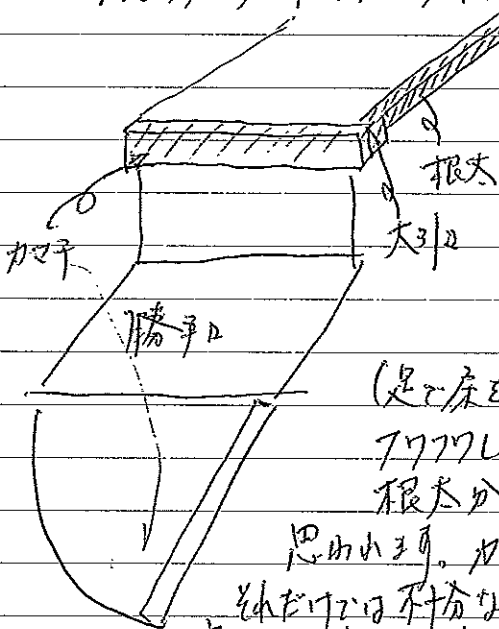 根太
大引口
カマチ
勝手口
(足で床を
フワフワし
根太が
思われます。カ
それだけでは不十分な